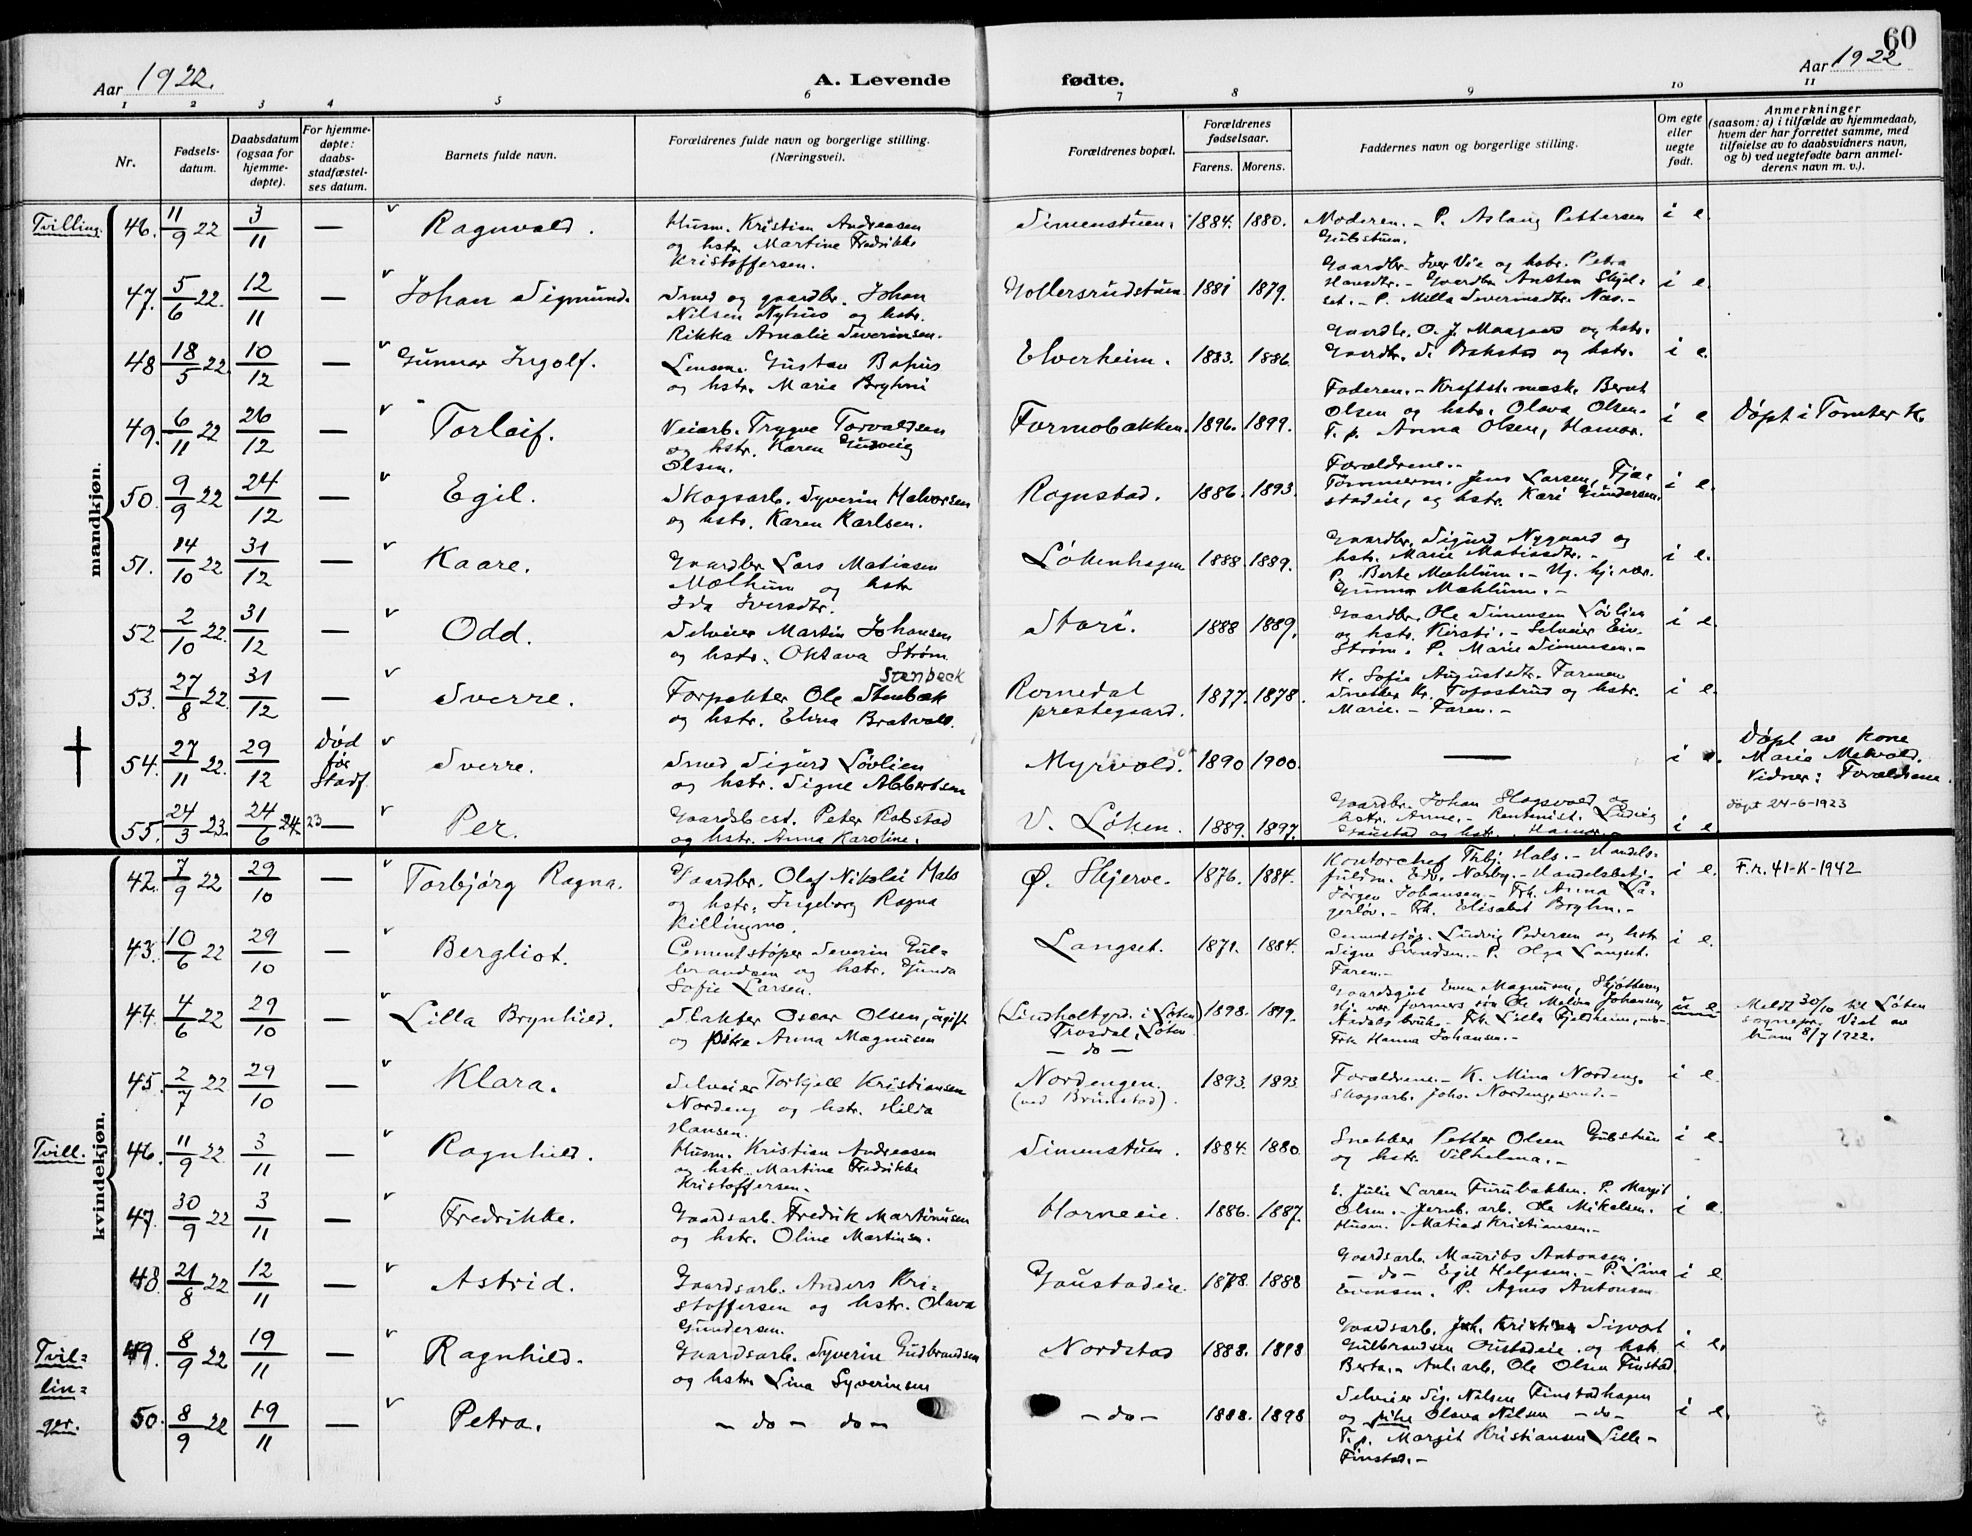 60
Aar 1922.
A. Levende fødte.
Aar 1922
1 2 3 4 5 6 7 8 9 10 11
Nr.
Fødsels-
datum.
Daabsdatum
(ogsaa for
hjemme-
døpte).
For hjemme-
døpte:
daabs-
stadfæstel-
ses datum.
Barnets fulde navn.
Forældrenes fulde navn og borgerlige stilling.
(Næringsvei).
Forældrenes bopæl.
Forældrenes
fødselsaar.
Farens. Morens.
Faddernes navn og borgerlige stilling.
Om egte
eller
uegte
født.
Anmerkninger
(saasom: a) i tilfælde av hjemmedaab,
hvem der har forrettet samme, med
tilføielse av to daabsvidners navn,
og b) ved uegtefødte barn anmel-
derens navn m. v.).
mandkjøn.
Tvilling. 46. 11/9 22 3/11 — Ragnvald.
Husm. Kristian Andreasen
og hstr. Martine Fredrikke
Kristoffersen.
Simenstuen. 1884. 1880.
Moderen. - P. Aslaug Pettersen
Gubstuen.
i e.
47. 5/6 22. 12/11 — Johan Sigmund.
Smed og gaardbr. Johan
Nilsen Nyhus og hstr.
Rikka Amalie Severinsen.
Gollersrudstuen 1881 1879.
Gaardbr. Iver Vie og hstr. Petra
Hansdtr. - Gaardbr. Ansten Skjel-
set. - P. Milla Severinsdtr. Næs. -
i e.
48 18/5 22. 10/12 — Gunnar Ingolf.
Lensm. Gustav Bahus
og hstr. Marie Bryhni
Elverheim. 1883. 1886.
Gaardbr. O. J. Maagaard og hstr.
Gaardbr. S. Bakstad og hstr.
i e.
49. 6/11 22 26/12 — Torleif.
Veiarb. Trygve Torvaldsen
og hstr. Karen Gudveig
Olsen.
Formobakken. 1896. 1899.
Faderen. - Kraftst. mask. Bernt
Olsen og hstr. Olava Olsen.
T. p. Anna Olsen, Hamar.
i e
Døpt i Tomter K.
50. 9/9 22 24/12 — Egil.
Skogsarb. Syverin Halvorsen
og hstr. Karen Karlsen.
Rognstad. 1886. 1893.
Forældrene. -
Tømmerm. Jens Larsen, Fjæ-
stadeie, og hstr. Kari Gundersen.
i e.
51. 14/10 22 31/12 — Kaare.
Gaardbr Lars Matiasen
Mælhum og hstr
Ida Iversdtr.
Løkenhagen 1888. 1889.
Gaardbr. Sigurd Nygaard og
hstr. Marie Matiasdtr. -
P. Berte Mæhlum. - Ug. hj. vær.
Gunnar Mæhlum. -
i e.
52 2/10 22. 31/12 — Odd.
Selveier Martin Johansen
og hstr. Oktava Strøm
Stori. 1888 1889.
Gaardbr. Ole Simensen Løvlien
og hstr. Kirsti. - Selveier Ein.
Strøm. P. Marie Simensen. -
i e.
53. 27/8 22. 31/12 — Sverre.
Stenbeck
Forpakter Ole Stenbæk
og hstr. Elina Bratvold.
Romedal
prestegaard. 1877. 1878.
K. Sofie Augustdtr. Farmen
Snekker Kr. Tofastrud og hstr.
Marie. - Faren. -
i e.
54. 27/11 22. 29/12 Død
før
Stadf. Sverre.
Smed Sigurd Løvlien
og hstr. Signe Albertsen
Myrvold. 1890 1900.
—
i e.
Døpt av Kone
Marie Melvold.
Vidner: Forældrene.
55. 24/3 23. 24/6 24. 23 — Per.
Gaardsbest. Peter Rolstad
og hstr. Anna Karoline.
V. Løken. 1889. 1897.
Gaardbr. Johan Skogsvold og
hstr. Anne. - Rentenist. Ludvig
Gaustad og hstr. Hamar. -
i e
Døpt 24-6-1923
kvindekjøn.
42. 7/9 22 29/10 — Torbjørg Ragna.
Gaardbr. Olaf Nikolai Hals
og hstr. Ingeborg Ragna
Killingmo.
Ø. Skjerve. 1876. 1884.
Kontorchef Thbj. Hals. - Handels-
fuldm. Edv. Norby. - Handelsbetj.
Jørgen Johansen. - Frk. Anna La-
gerløv. - Frk. Elisabet Bryhn. -
i e.
F. r. 41-K-1942
43. 10/6 22 29/10 — Bergliot.
Cementstøper Severin Gul-
brandsen og hstr. Gunda
Sofie Larsen.
Langset. 1871. 1884.
Cementstøp. Ludvig Pedersen og hstr
Signe Svendsen. - P. Olga Langset.
Faren. -
i e.
44. 4/6 22 29/10 — Lilla Brynhild.
Slakter Oscar Olsen, ugift
og pike Anna Magnusen
(Lindholtgd. i Løten)
Trosdal, Løten
— do — 1898. 1899.
Gaardsgut Even Magnusen, Skjøtteren
Hj. vær. formers søn Ole Melvin Johansen,
Aadals bruk. - Frk. Lilla Fjelsheim,
Frk Hanna Johansen. -
u e
Meldt 30/10 til Løten
sognepr. Viet av
ham 8/7 1922.
45. 2/7 22 29/10 — Klara.
Selveier Torkjell Kristiansen
Nordeng og hstr. Hilda
Hansen.
Nordengen.
(ved Brunstad). 1893. 1893
Forældrene. - K. Mina Nordeng.
Skogsarb. Johs. Nordengesund. -
i e.
Tvill. 46. 11/9 22. 3/11 — Ragnhild.
Husm. Kristian Andreasen
og hstr. Martine Fredrikke
Kristoffersen. -
Simenstuen. 1884. 1880.
Snekker Petter Olsen Gubstuen
og hstr. Vilhelmina. -
i e.
47. 30/9 22 3/11 — Fredrikke.
Gaardsarb. Fredrik Martinusen
og hstr. Oline Martinsen.
Horneeie. 1886. 1887.
E. Julie Larsen Furubakken. P. Margit
Olsen. - Jernb. arb. Ole Mikelsen.
Husm. Matias Kristiansen. -
i e.
48. 21/8 22 12/11 — Astrid.
Gaardsarb. Anders Kri-
stoffersen og hstr. Olava
Gundersen.
Gaustadeie. 1878. 1888
Gaardsarb. Maurits Antonsen.
— do — Egil Helgesen. - P. Lina
Evensen. P. Agnes Antonsen
i e.
Tvil=
lin=
ger.
49. 8/9 22 19/11 — Ragnhild.
Gaardsarb. Syverin Gudbrandsen
og hstr. Lina Syverinsen
Nordstad 1888. 1898
Gaardsarb. Joh. Kristian Sigvart
Gulbrandsen Oustadeie og hstr.
Berta. - Anl. arb. Ole Olsen Finstad
i e.
50. 8/9 22 19/11 — Petra.
— do — do —
— do — 1888. 1898
Selveier Sig. Nilsen Finstadhagen
og pike Olava Nilsen — do —
T. p. Margit Kristiansen Lille-
Finstad. -
i e.